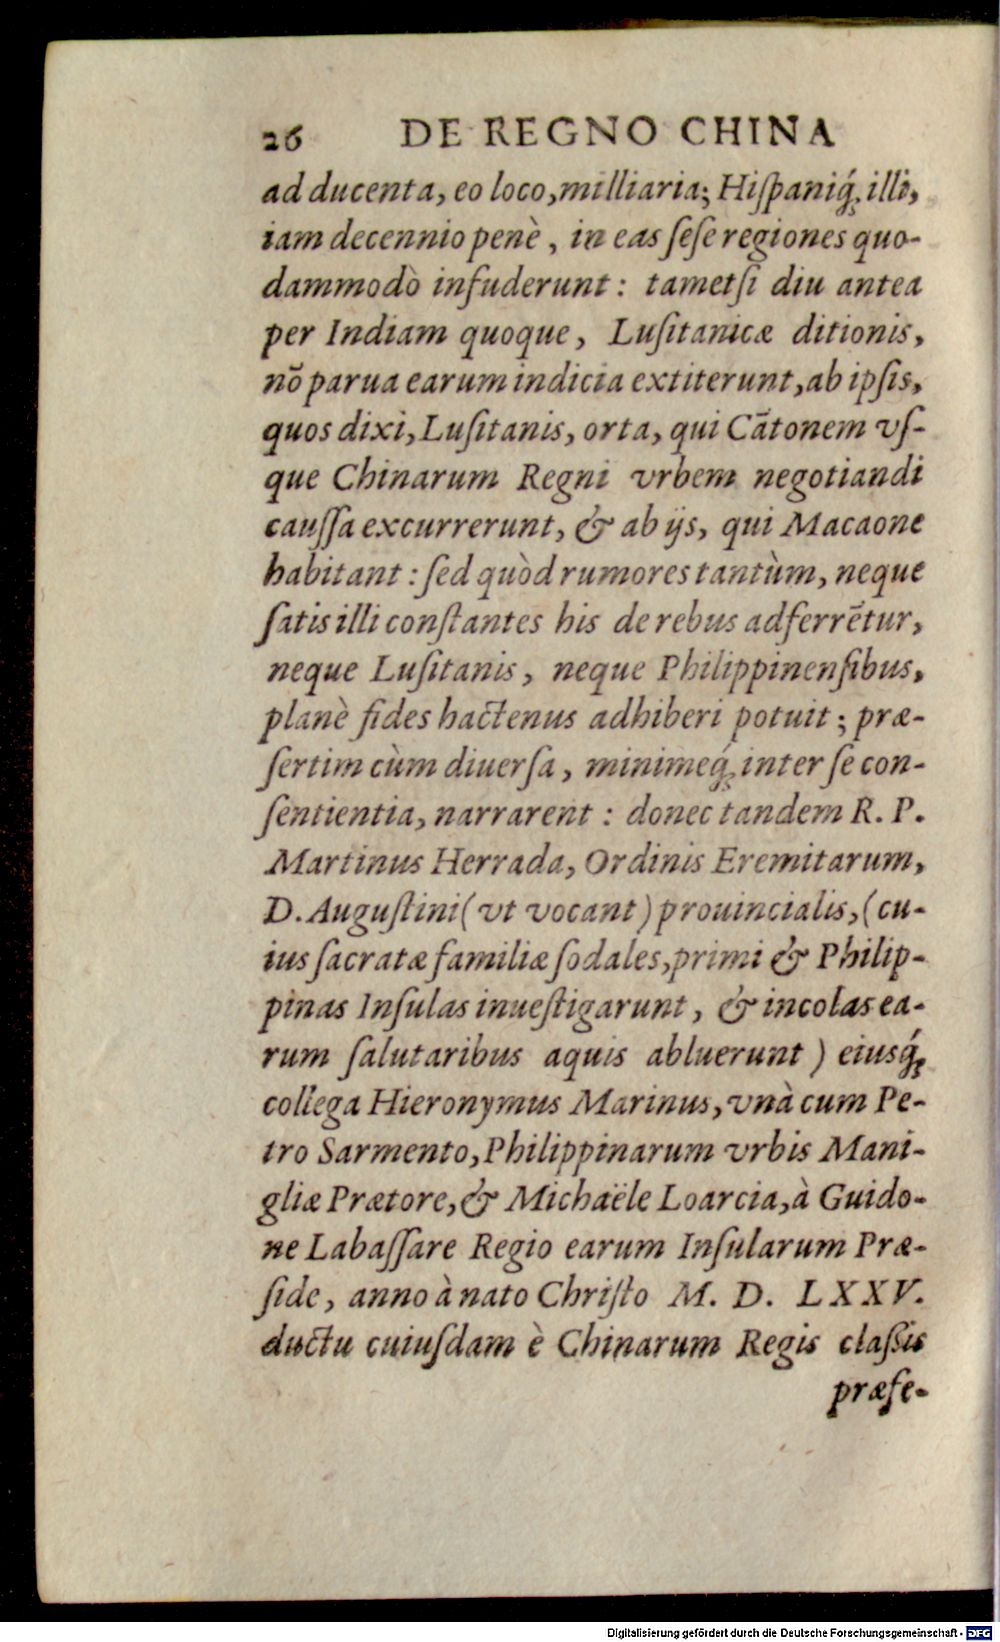 26 DE REGNO CHINA
ad ducenta, eo loco, milliaria; Hiſpaniq́ꝫ illi,
iam decennio penè, in eas ſeſe regiones quo-
dammodò infuderunt: tametſi diu antea
per Indiam quoque, Luſitanicæ ditionis,
nō parua earum indicia extiterunt, ab ipſis,
quos dixi, Luſitanis, orta, qui Cātonem vſ-
que Chinarum Regni vrbem negotiandi
cauſſa excurrerunt, & ab ijs, qui Macaone
habitant: ſed quòd rumores tantùm, neque
ſatis illi conſtantes his de rebus adferrētur,
neque Luſitanis, neque Philippinenſibus,
planè fides hactenus adhiberi potuit; præ-
ſertim cùm diuerſa, minimeq́ꝫ inter ſe con-
ſentientia, narrarent: donec tandem R. P.
Martinus Herrada, Ordinis Eremitarum,
D. Auguſtini (vt vocant) prouincialis, (cu-
ius ſacratæ familiæ ſodales, primi & Philip-
pinas Inſulas inueſtigarunt, & incolas ea-
rum ſalutaribus aquis abluerunt) eiusq́ꝫ
collega Hieronymus Marinus, vnà cum Pe-
tro Sarmento, Philippinarum vrbis Mani-
gliæ Prætore, & Michaële Loarcia, à Guido-
ne Labaſſare Regio earum Inſularum Præ-
ſide, anno à nato Chriſto M. D. LXXV.
ductu cuiuſdam è Chinarum Regis claſsis
præfe-
Digitalisierung gefördert durch die Deutsche Forschungsgemeinschaft - DFG